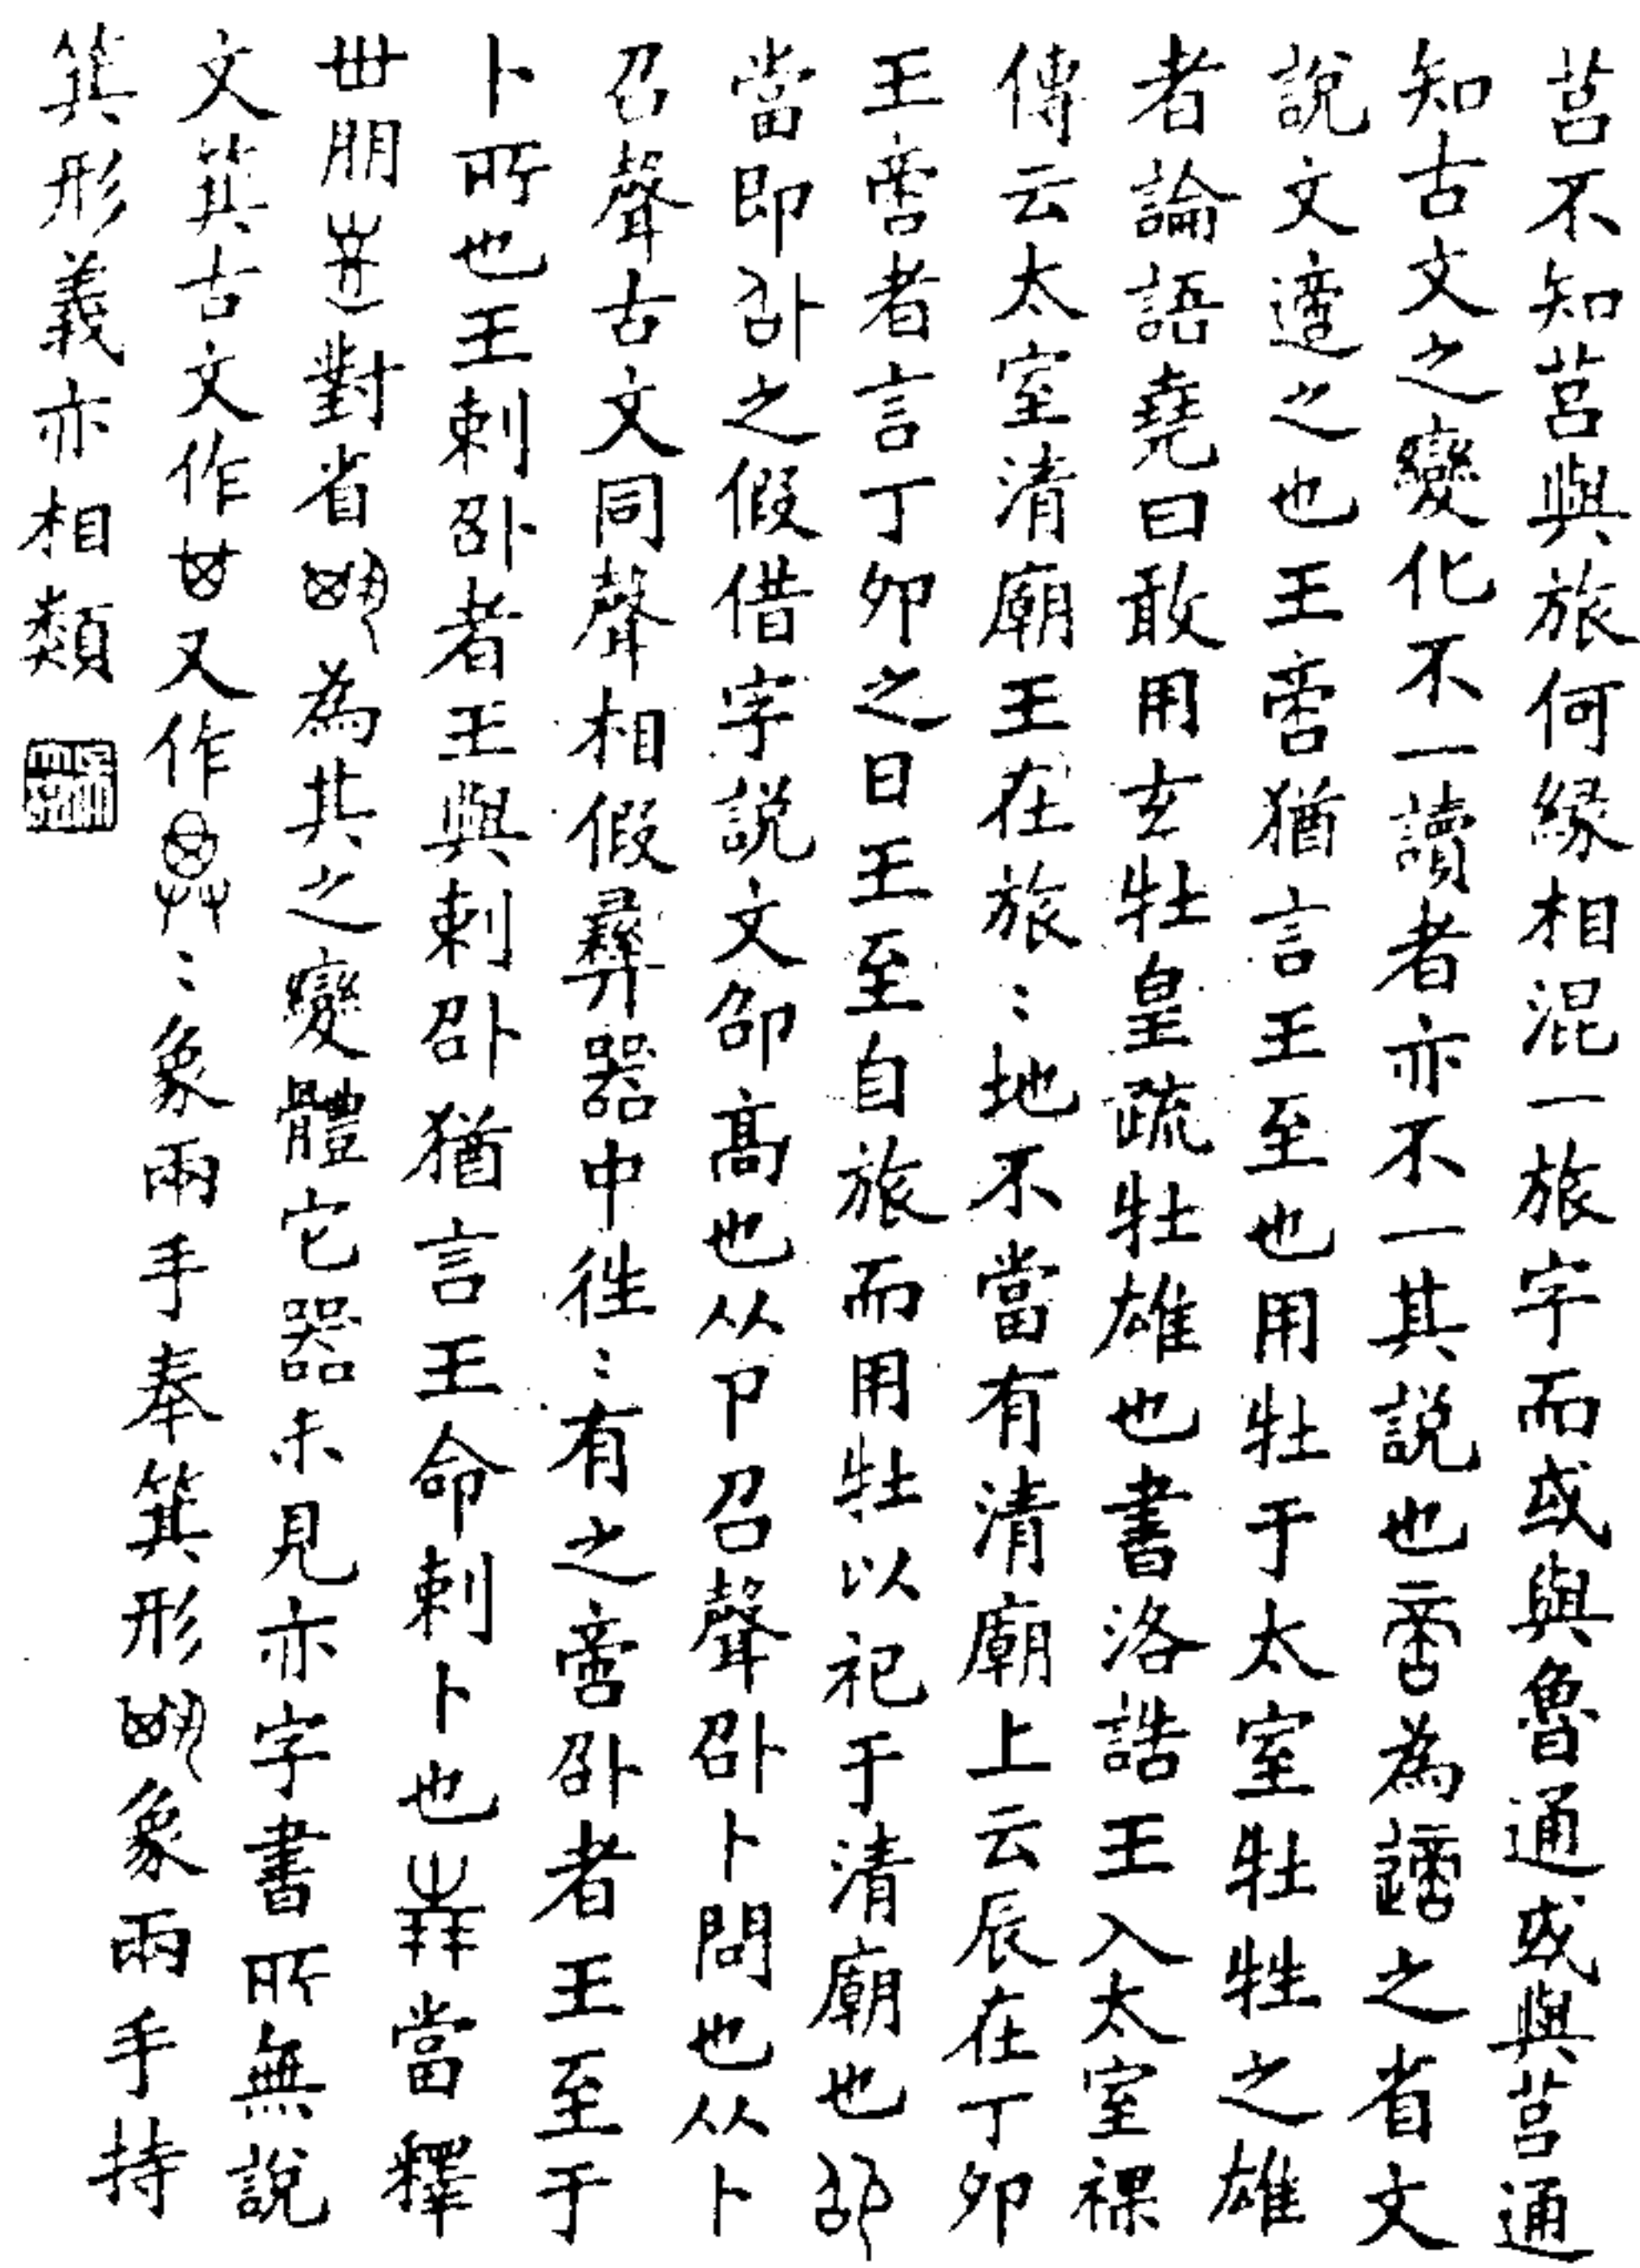 莒不知莒與旅何縁相混一旅字而或與魯通或與莒通
知古文之變化不一讀者亦不一其説也啻為謫之省文
說文適之也王啻猶言王至也用牡于太室牡牲之雄
者論語堯曰敢用玄牡皇疏牡雄也書洛誥王入太室祼
傳云太室清廟王在旅〻地不當有清廟上云辰在丁卯
王啻者言丁卯之日王至自旅而用牡以祀于清廟也
當即卲之假借字説文卲高也从卪召聲卧卜問也从卜
召聲古文同聲相假彝器中徃〻有之啻者王至于
卜所也王剌者王與剌猶言王命剌卜也當釋
丗朋對省為其之變體它器未見亦字書所無說
文箕古文作又作〻象兩手奉箕形象兩手持
箕形義亦相類